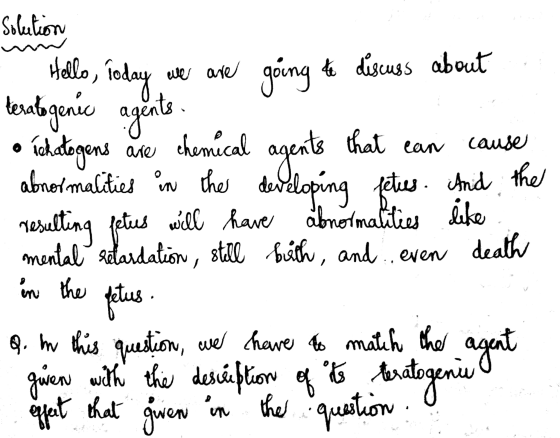 Solution
Hello, Today we are going to discuss about
teratogenic agents.
• Teratogens are chemical agents that can cause
abnormalities in the developing fetus. And the
resulting fetus will have abnormalities like
mental retardation, still birth, and even death
in the fetus.
Q. In this question, we have to match the agent
given with the description of its teratogenic
effect that given in the question.